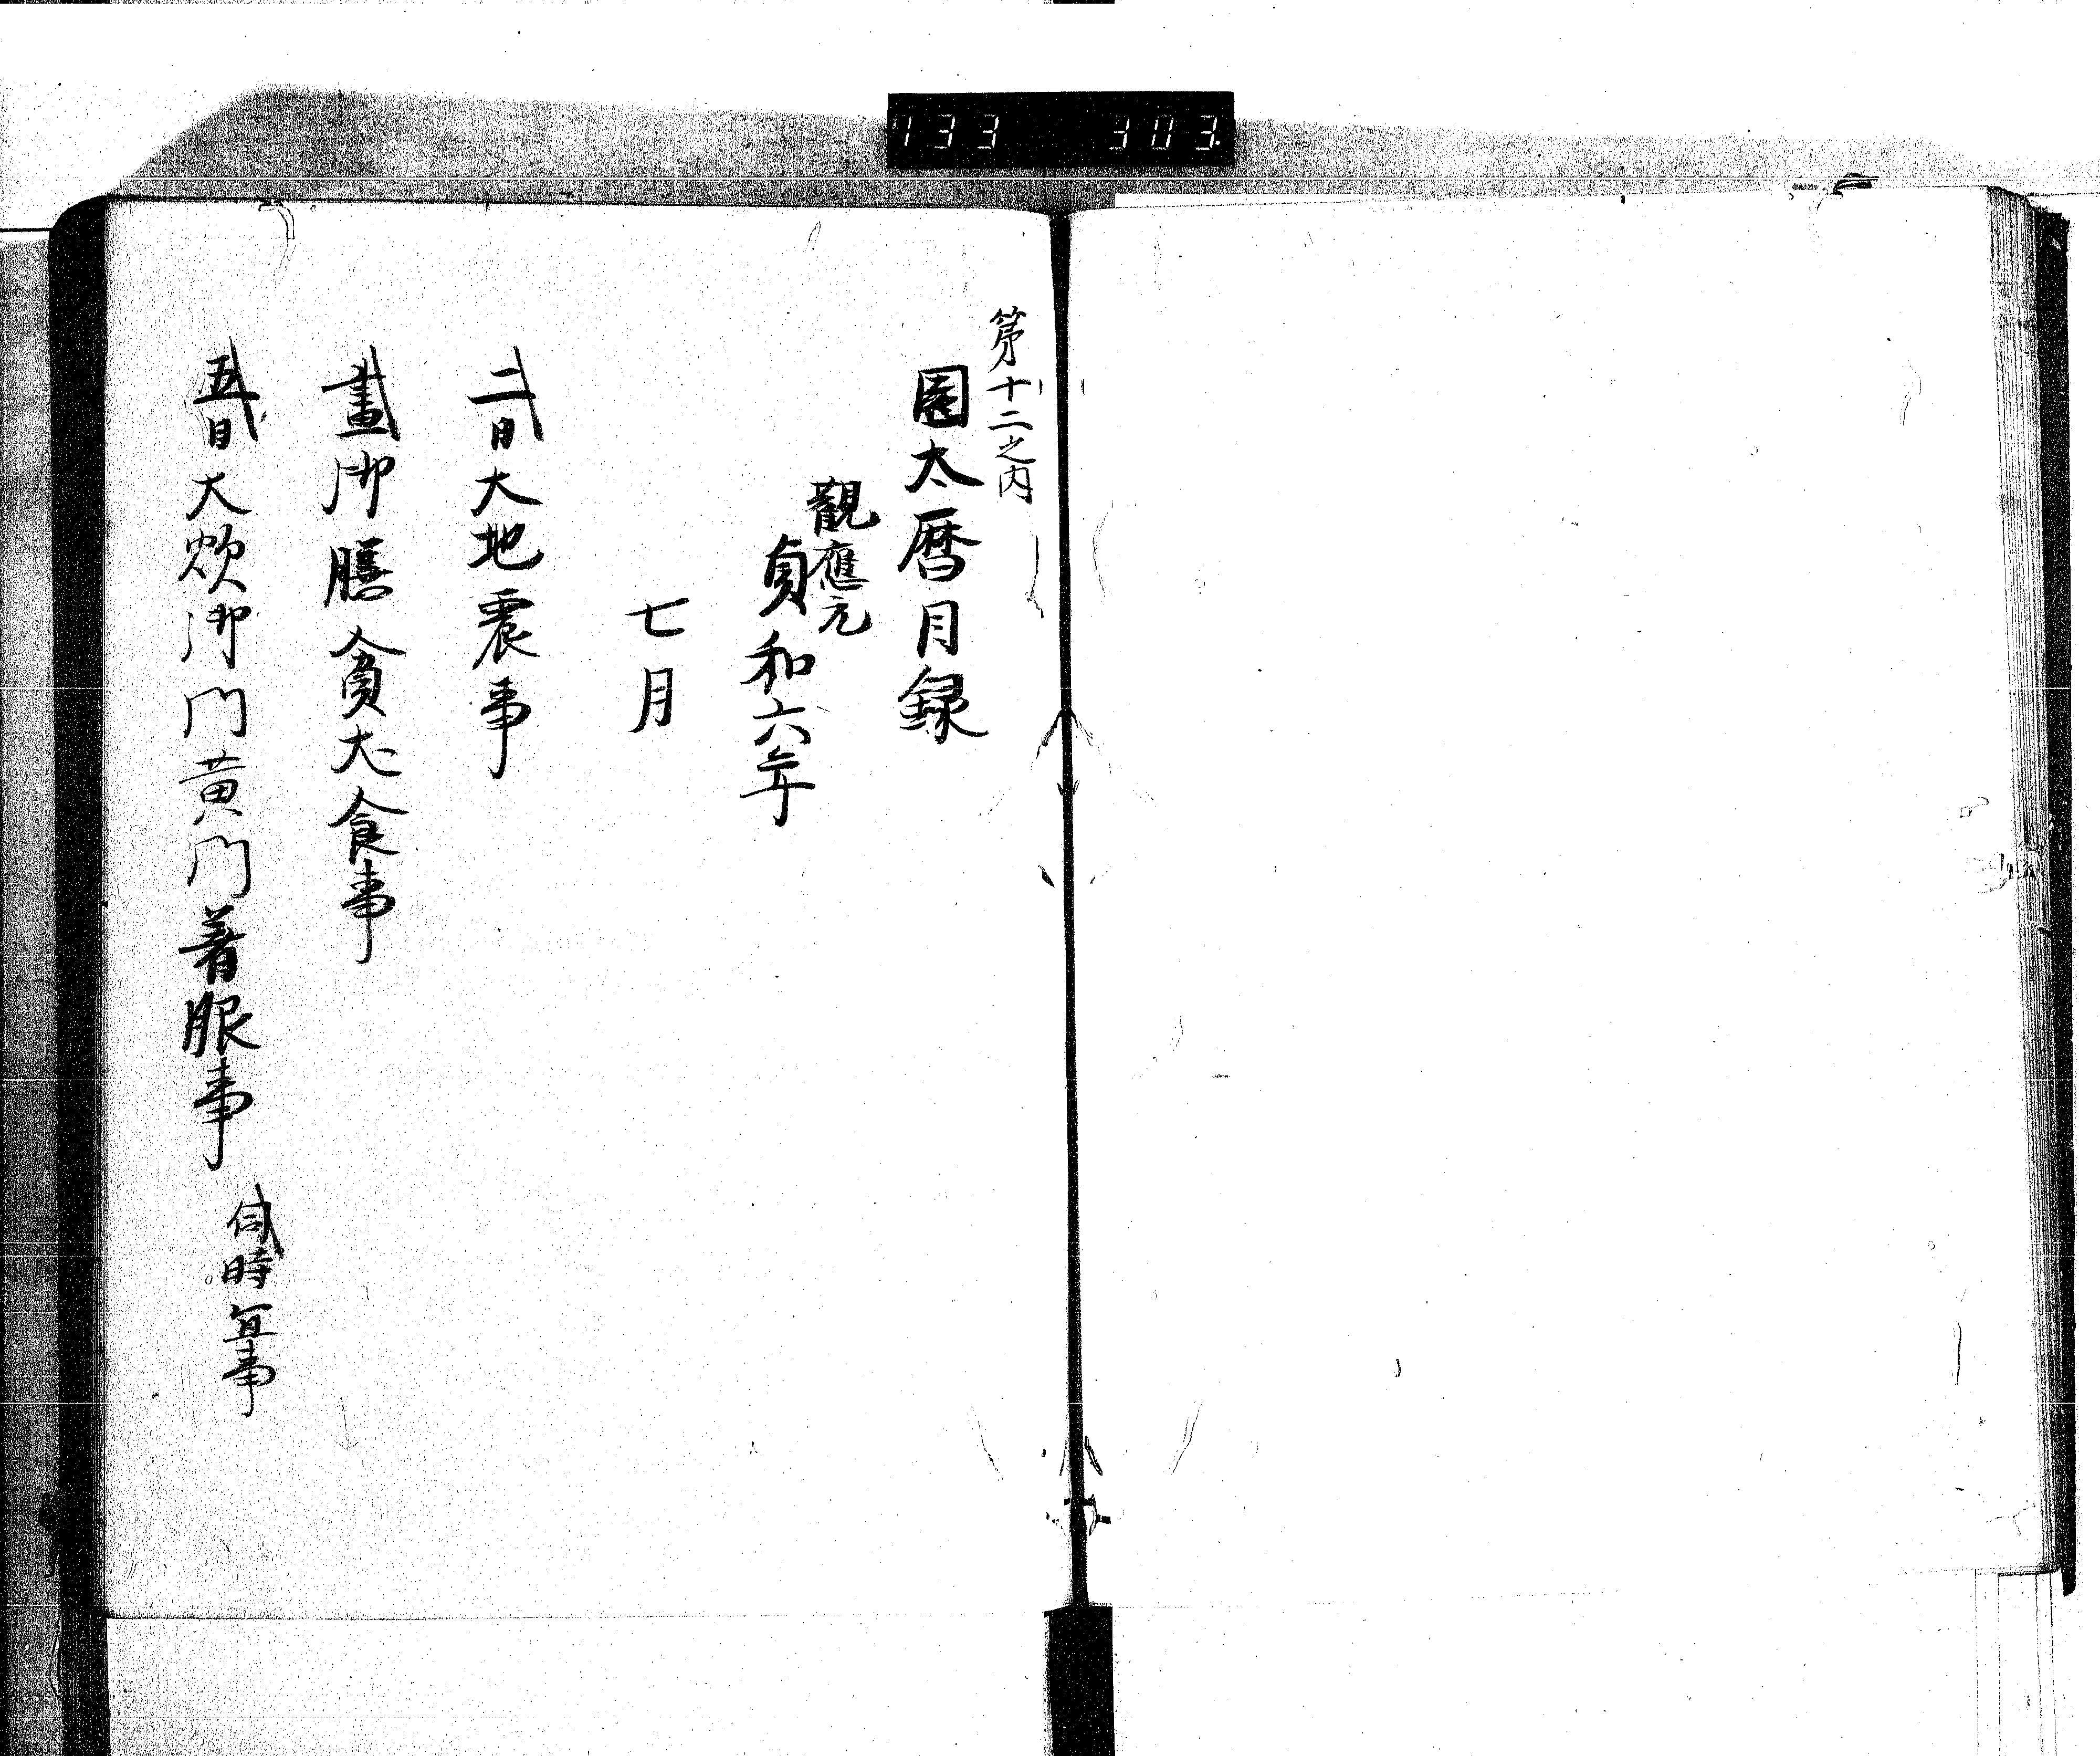 133 303
第十二之内
園太暦目録
觀應元
貞和六年
七月
二日大地震事
晝御膳貪犬食事
五日大炊御門黄門着服事
同時宜事